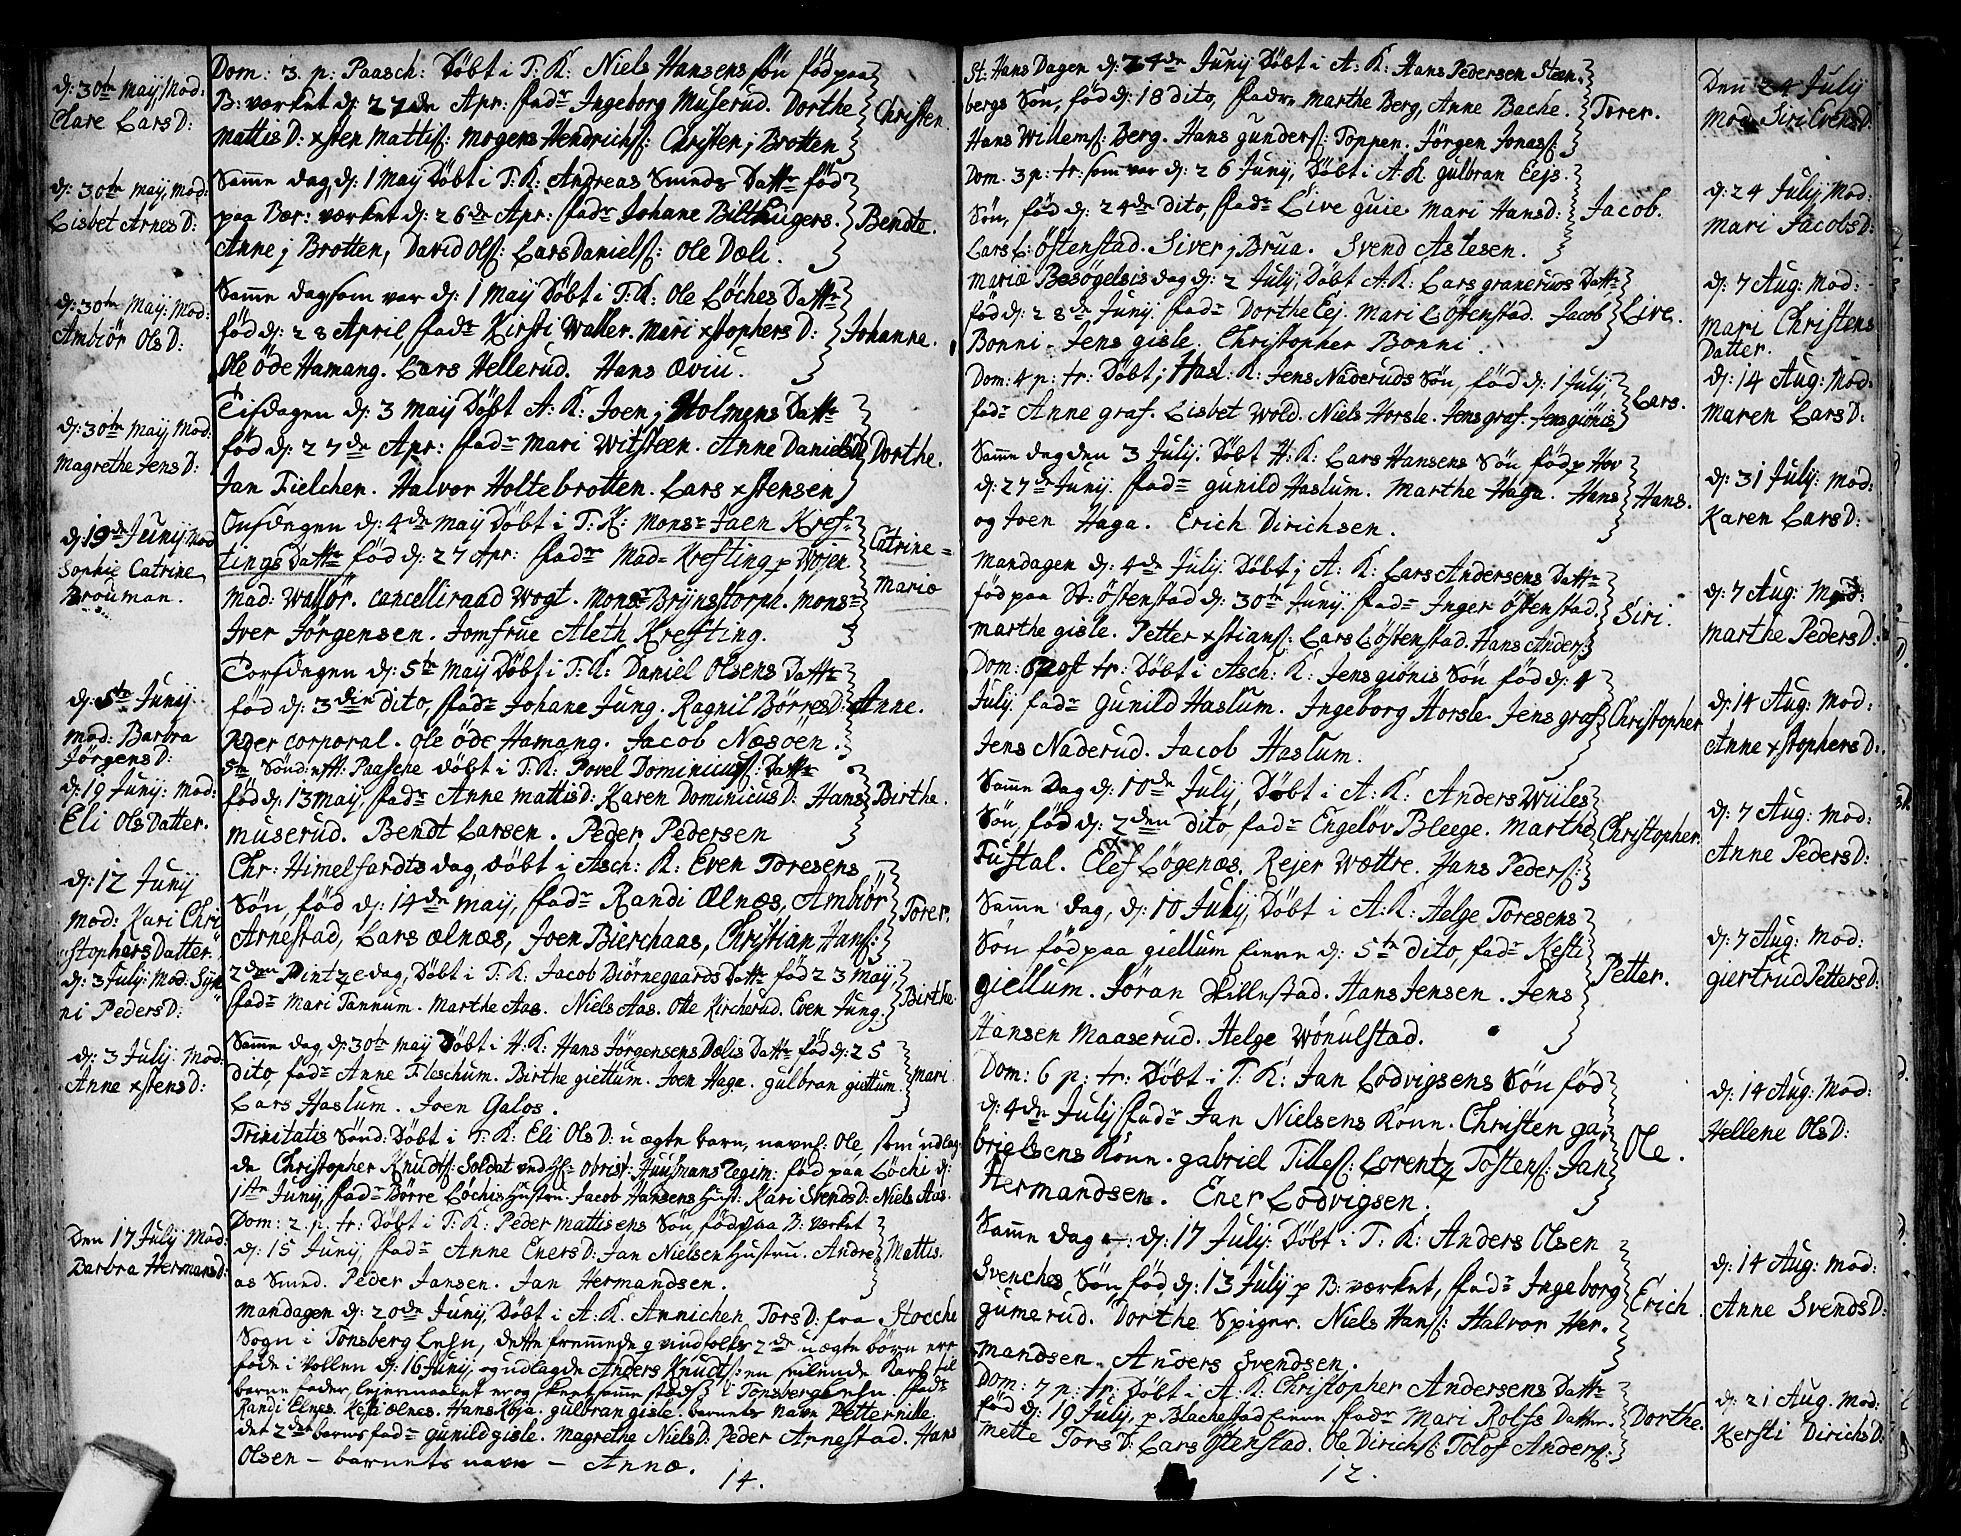 dj: 30te Maij, Mod:
Clare LarsD:
dj: 30te Maij, Mod:
Lisbet ArnesD:
dj: 30te Maij: Mod:
Ambiör OlsD:
dj: 30te Maij Mod:
Magrethe JensD:
dj: 19de Junij: Mod
Sophie Catrine
Brouman.
dj: 5te Junij
Mod: Barbra
JörgensD:
dj: 19 Junij: Mod:
Eli OlsDatter.
dj: 12 Junij
Mod: Kari Chri
stophersDatter.
dj: 3 Julij: Mod: Syn
ni PedersD:
dj: 3 Julij: Mod:
Anne xstensD:
Den 17 Julij Mod:
Barbra HermansD:
Dom: 3. p: Paasch: Döbt i T: K: Niels Hansens Sön föd paa
B: værket dj: 27de Apr: fadr Ingeborg Muserud. Dorthe
MattisD: xsten Mattis: Mogens Hendrichs: Christen j Brotten
Christen.
Samme dag, dj: 1 Maij Döbt i T: K: Andreas Smeds Dattr föd
paa Bær: værket dj: 26de Apr: fadr Johane Bilthugers.
Anne j Brotten, David Ols: Lars Daniels: Ole Dæli.
Bendte.
Samme dag som var dj: 1 Maij Döbt i T: K: Ole Löches Dattr
föd dj: 28 April, fadr Kirsti Waller. Mari xstophersD:
Ole öde Hamang. Lars Hellerud. Hans Øviu.
Johanne.
Tisdagen dj: 3 Maij Döbt A: K: Joen j Holmens Dattr
föd dj: 27de Apr: fadr Mari Witsteen. Anne DanielsD
Jan Fielchen. Halvor Holtebrotten. Lars xstensen
Dorthe.
Onsdagen dj: 4de Maij Döbt i T: K: Monsr Jaen Kref=
tings Dattr föd dj: 27 Apr: fadr Mad= Krefting p Wojen.
Mad: Wallör. Cancelliraad Wogt. Monsr Brijnstorph. Mons=
Iver Jörgensen. Jomfrue Aleth Krefting.
Catrine=
Marie
Torsdagen dj: 5te Maij Döbt i T: K: Daniel Olsens Dattr
föd dj: 3die dito, fadr Johane Jung. Ragnil BörresD:
Peder Corporal. Ole öde Hamang. Jacob Næsöen.
Anne.
5te Sönd: eft: Paasche döbt i T: K: Povel Dominicus: Dattr
föd dj: 13 Maij, fadr Anne MattisD: Karen DominicusD: Hans
Muserud. Bendt Larsen. Peder Pedersen
Birthe.
Chr: Himelfardts dag, döbt i Asch: K: Even Toresens
Sön, föd dj: 14de Maij, fadr Randi Ælnæs, Ambiör
Arnestad, Lars Ælnæs, Joen Bierchaas, Christian Hans:
Torer.
2den Pintzedag, Döbt i T: K: Jacob Biörnegaards Dattr föd 23 Maij,
fadr Mari Tannum. Marthe Aas. Niels Aas. Otte Kircherud. Even Jung.
Birthe.
Samme dag, dj: 30te Maij Döbt i H: K: Hans Jörgensens Dælis Dattr föd dj: 25
dito, fadr Anne Fleschum. Birthe giettum. Joen Haga. Gulbran giettum.
Lars Haslum. Joen Galos.
Mari
Trinitatis Sönd: Döbt i T: K: Eli OlsD: uægte barn, navnl: Ole, som udlag=
de Christopher Knuds: Soldat ved Hr Obrist: Juulmans Regim: föd paa Löche dj:
1ste Junij, fadr Börre Löches Hustru. Jacob Hansens Hust: Kari SvendsD: Niels Aas.
Dom: 2. p: tr: Döbt i T: K: Peder Mattisens Sön, föd paa B: værket
dj: 15 Junij, fadr Anne EnersD: Jan Nielsen Hustru. Andre
as Smed. Peder Jansen. Jan Hermandsen.
Mattis.
Mandagen dj: 20de Junij, Döbt i A: K: Annichen TorsD: fra Stocche
Sogn i Tonsberg Lehn, dette fremmede qvindfolks 2de uægte börn er
föde i Vollen dj: 16 Junij, og udlagde Anders Knuds: en Karl til
barne fader, leiermaalet er og skeet samme stæds i Tonsberg Lehn. fadr
Randi Elnes. Kesia Ælnes. Hans Koja. Gulbran gisle. barnets navn Petternille.
det 2det barns fadr Gunild gisle. Magrethe NielsD: Peder Arnestad. Hans
Olsen - barnets navn - Annæ.
14.
St: Hans Dagen dj: 24de Junij Döbt i A: K: Hans Pedersen Steen.
bergs Sön, föd dj: 18 dito, fadr Marthe Berg, Anne Bache.
Hans Willems: Berg. Hans Gunders: Toppen. Jörgen Jonas:
Torer.
Dom. 3 p: tr. som var dj: 26 Junij, Döbt i A: K Gulbran Eejs
Sön, föd dj: 24de dito fadr Live Guie Mari HansD:
Lars L: Östenstad. Siver j Brua. Svend Aslesen.
Jacob.
Mariæ Besögelsis dag dj: 2 Julij, Döbt A: K: Lars graneruds Dattr
föd dj: 28de Junij. fadr Dorthe Eej. Mari Löstenstad. Jacob
Bonni. Jens gisle. Christopher Bonni.
Live.
Dom: 4 p: tr: Döbt j Hasl: K: Jens Naderuds Sön, föd dj: 1 Julij,
fadr Anne graf. Lisbet Wold. Niels Horsle. Jens graf. Jens giönis
Lars.
Samme dag den 3 Julij. Döbt H: K: Lars Hansens Sön föd p Hov
dj: 27de Junij. fadr Gunild Haslum. Marthe Haga. Hans
og Joen Haga. Erich Dirichsen.
Hans.
Mandagen dj: 4de Julij Döbt j A: K: Lars Andersens Dattr
föd paa St: Östenstad dj: 30te Junij. fadr Inger Östenstad.
Marthe gisle. Petter xstians: Lars Löstenstad. Hans Anders:
Siri.
Dom: 5 post tr: Döbt i Asch: K: Jens giönis Sön föd dj: 4
Julij fadr Gunild Haslum. Ingeborg Horsle. Jens graf
Jens Naderud. Jacob Haslum.
Christopher
Samme Dag dj: 10de Julij, Döbt i A: K: Anders Wiiles
Sön, föd dj: 2den dito fadr Engelöv Bleege. Marthe
Fustal. Elef Løgenæs. Rejer Wættre. Hans Peders:
Christopher.
Samme dag, dj: 10 Julij, Döbt i A: K: Helge Toresens
Sön föd paa giellum Eiere dj: 5te dito, fadr Kesti
giellum. Jöran Skillestad. Hans Jensen. Jens
Hansen Maaserud. Helge Wönulstad.
Petter.
Dom: 6 p: tr: Döbt i T: K: Jan Lodvigsens Sön föd
dj: 4de Julij fadr Jan Nielsens Konn. Christen ga.
brielsens Konn. gabriel Tilles: Lorentz Tostens: Jan
Hermandsen. Ener Lodvigsen.
Ole.
Samme dag dj: 17 Julij: Döbt i T: K: Anders Olsen
Svenches Sön, föd dj: 13 Julij p B: værket, fadr Ingeborg
gumerud. Dorthe Spiger. Niels Hans: Halvor Her.
mandsen. Anders Svendsen.
Erich
Dom: 7 p: tr: Döbt i A: K: Christopher Andersens Dattr
föd dj: 19 Julij, p Blachestad Eiere fadr Mari Rolfs Datter.
Mette TorsD: Lars Ostenstad. Ole Dirichs: Tolof Anders:
Dorthe.
12.
Den 24 Julij
Mod: Siri EvensD:
dj: 24 Julij Mod:
Mari JacobsD:
dj: 7 Aug: Mod:
Mari Christens
Datter.
dj: 14 Aug: Mod:
Maren LarsD:
dj: 31 Julij: Mod:
Karen LarsD:
dj: 7 Aug: Mod:
Marthe PedersD:
dj: 14 Aug: Mod:
Anne xstophersD:
dj: 7 Aug: Mod:
Anne PedersD:
dj: 7 Aug: Mod:
giertrud PettersD:
dj: 14 Aug: Mod:
Hellene OlsD:
dj: 14 Aug: Mod:
Anne SvendsD:
dj: 21 Aug. Mod:
Kersti DirichsD: